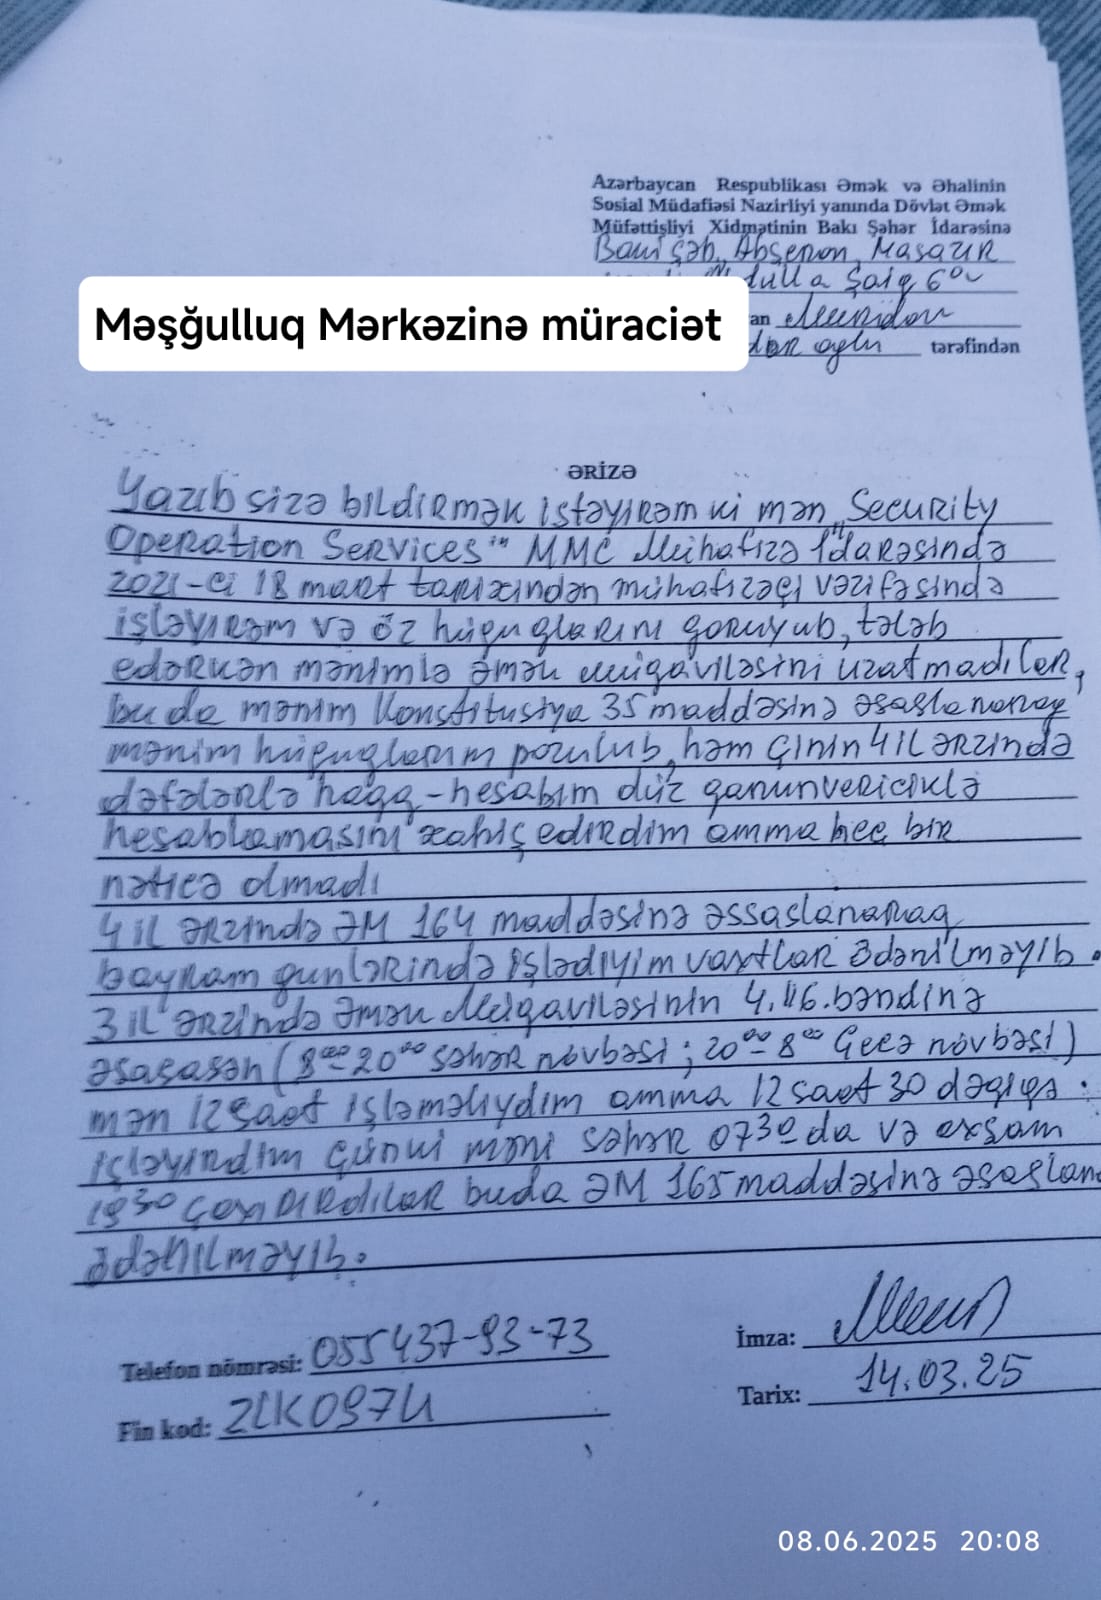 Azərbaycan Respublikası Əmək və Əhalinin
Sosial Müdafiəsi Nazirliyi yanında Dövlət Əmək
Müfəttişliyi Xidmətinin Bakı Şəhər İdarəsinə
Bakı şəh, Abşeron, Masazır
dulla Şaiq 6
Məşğulluq Mərkəzinə müraciət
an
oğlu tərəfindən
ƏRİZƏ
Yazıb sizə bildirmək istəyirəm ki mən "Security
Operation Services" MMC Mühafizə İdarəsində
2021-ci 18 mart tarixindən mühafizəçi vəzifəsində
işləyirəm və öz hüquqlarını qoruyub, tələb
edərkən mənimlə Əmək müqaviləsini uzatmadılar,
bu da mənim Konstitusiya 35 maddəsinə əsaslanaraq
mənim hüquqlarım pozulub, həm çinin 4 il ərzində
dəfələrlə haqq-hesabım düz qanunvericiklə
hesablamasını xahiş edirdim amma heç bir
nəticə olmadı
4 il ərzində ƏM 164 maddəsinə əssaslanaraq
bayram günlərində işlədiyim vaxtlar ödənilməyib.
3 il ərzində Əmək Müqaviləsinin 4.46.bəndinə
əsasasən (8⁰⁰-20⁰⁰ səhər növbəsi; 20⁰⁰-8⁰⁰ Gecə növbəsi)
mən 12 saat işləməliydim amma 12 saat 30 dəqiqə
işləyirdim çünki məni səhər 07³⁰ da və axşam
19³⁰ çağırırdılar buda ƏM 165 maddəsinə əsaslan
ödənilməyib.
Telefon nömrəsi: 055 437-93-73
İmza:
Fin kod: ZCK097U
Tarix: 14.03.25
08.06.2025 20:08